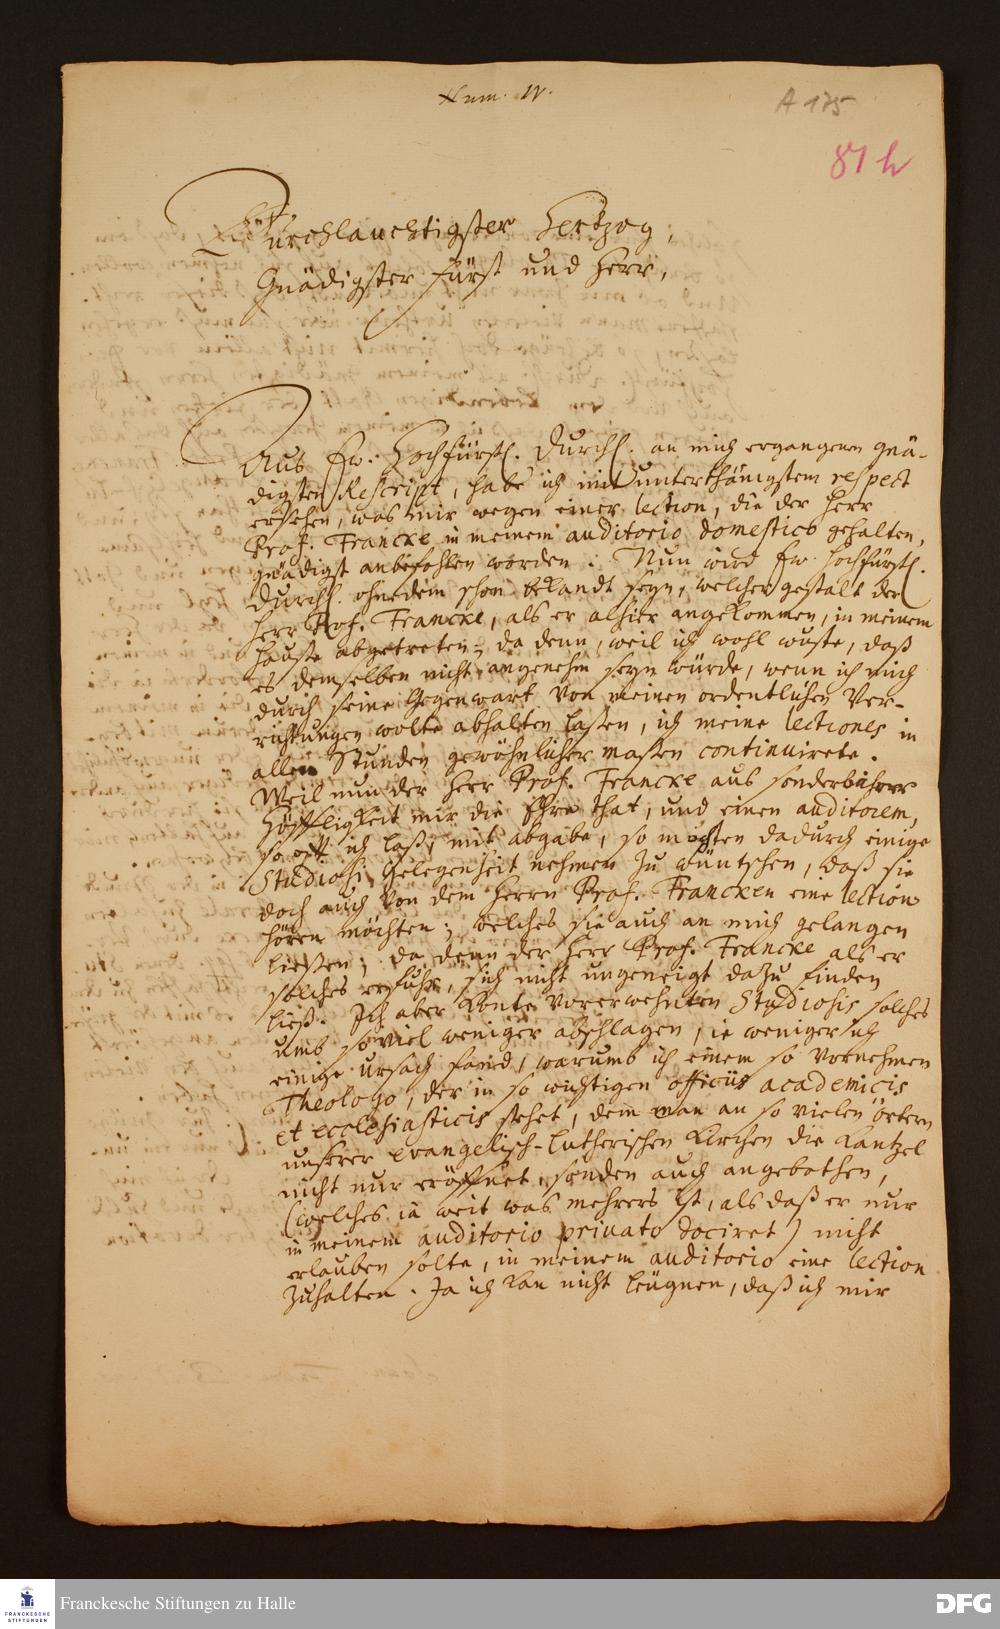 Num. IV.
A 175
81 h
Durchlauchtigster Hertzog,
Gnädigster Fürst und Herr,
Aus Ew. Hochfürstl. Durchl. an mich ergangenen gnä-
digsten Rescript, habe ich mit unterthänigstem respect
ersehen, was mir wegen einer lection, die der Herr
Prof. Francke in meinem auditorio domestico gehalten,
gnädigst anbefohlen worden. Nun wird Ew. Hochfürstl.
Durchl. ohnedem schon bekandt seyn, welcher gestalt der
Herr Prof. Francke, als er alhier angekommen, in meinem
Hause abgetreten, da denn, weil ich wohl wuste, daß
es demselben nicht angenehm seyn würde, wenn ich mich
durch seine Gegenwart von meinen ordentlichen Ver-
richtungen wolte abhalten laßen, ich meine lectiones in
allen Stunden gewöhnlicher maßen continuirete.
Weil nun der Herr Prof. Francke aus sonderbahrer
Höffligkeit mir die Ehre that, und einen auditorem,
so offt ich laß, mit abgabe, so mochten dadurch einige
Studiosi Gelegenheit nehmen zu wüntschen, daß sie
doch auch von dem Herrn Prof. Francken eine lection
hören möchten; welches sie auch an mich gelangen
ließen; da denn der Herr Prof. Francke als er
solches erfuhr, sich nicht ungeneigt dazu finden
ließ. Ich aber konte vorerwehnten Studiosis solches
umb so viel weniger abschlagen, ie weniger ich
einige ursach fand, warumb ich einem so vornehmen
Theologo, der in so wichtigen officiis academicis
et ecclesiasticis stehet, dem man an so vielen örtern
unserer evangelisch-Lutherischen Kirchen die Kantzel
nicht nur eröffnet, sondern auch angebothen,
(welches ia weit was mehrers ist, als daß er nur
in meinem auditorio privato dociret) nicht
erlauben solte, in meinem auditorio eine lection
zuhalten. Ja ich kan nicht leügnen, daß ich mir
FRANCKESCHE
STIFTUNGEN
Franckesche Stiftungen zu Halle
DFG